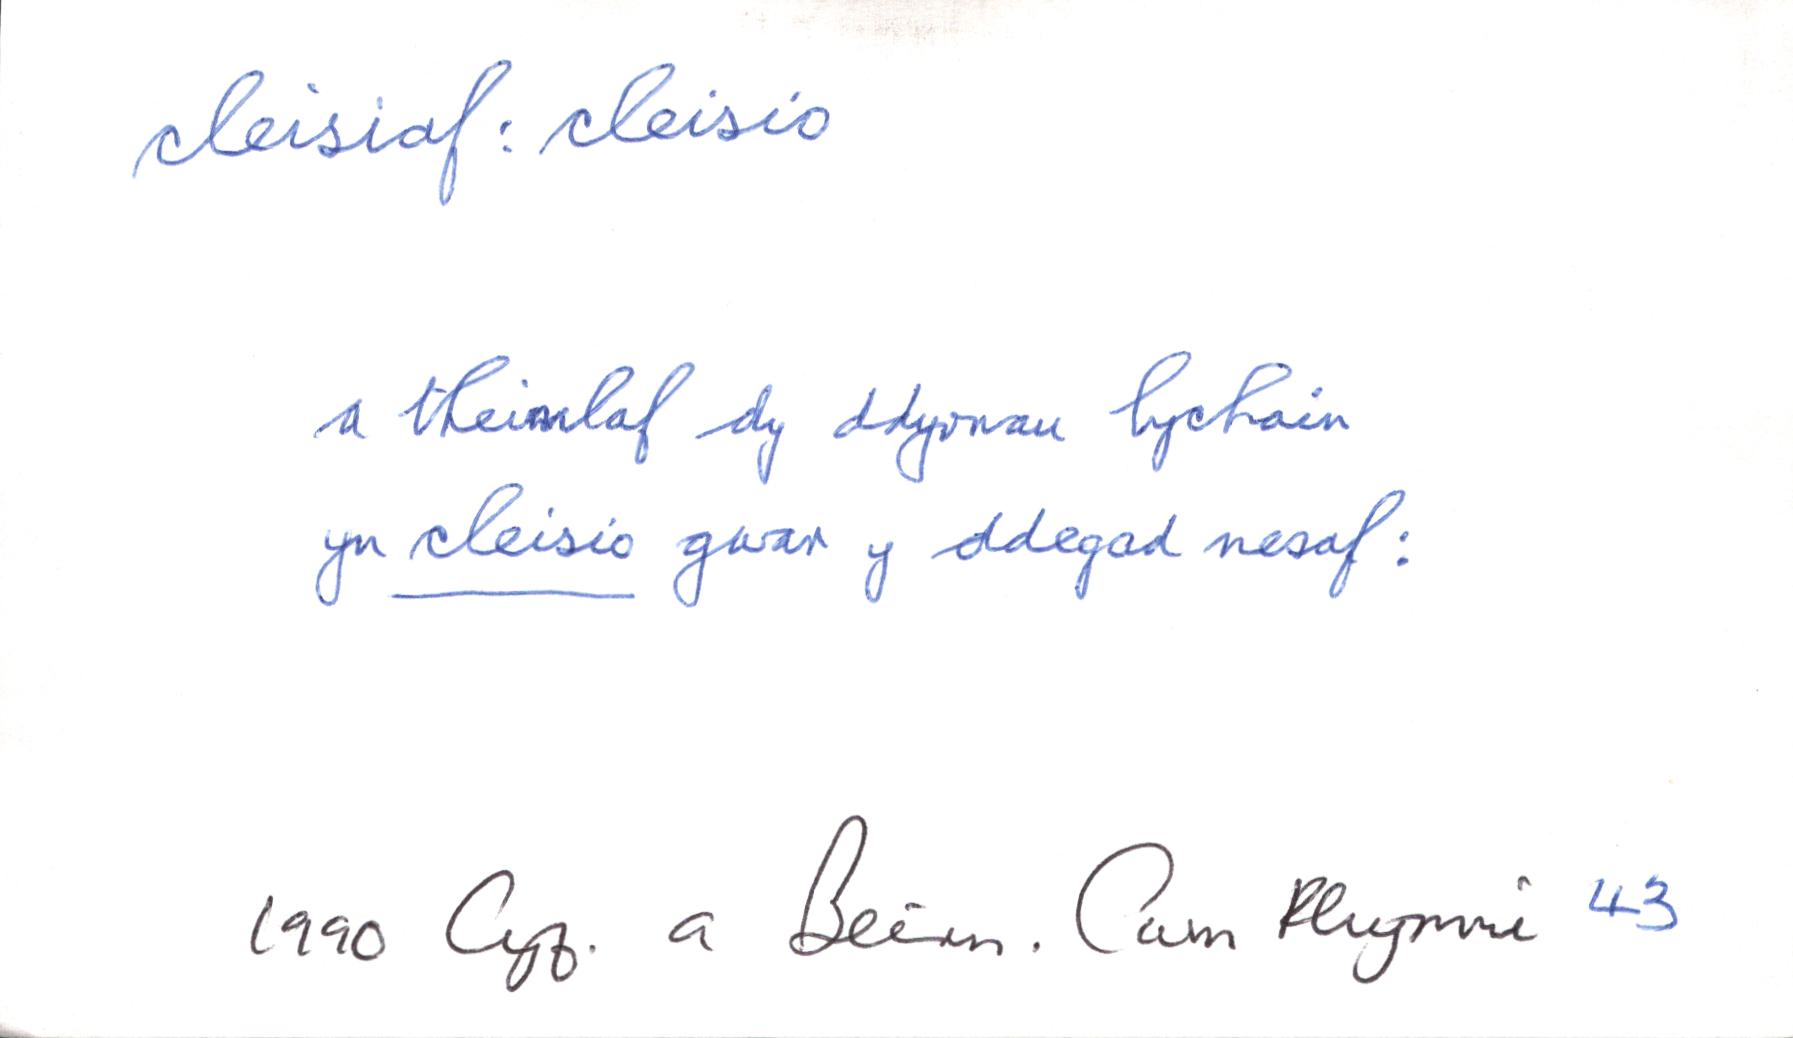 cleisiaf: cleisio
a theimlaf dy ddyrnau bychain
yn cleisio gwar y ddegad nesaf:
1990 Cyf. a Beirn. Cwm Rhymni 43